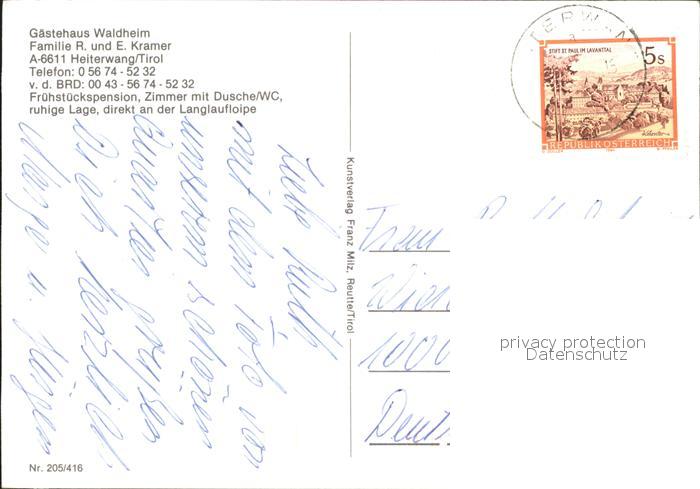 Gästehaus Waldheim
Familie R. und E. Kramer
A-6611 Heiterwang/Tirol
Telefon: 0 56 74 - 52 32
v. d. BRD: 00 43 - 56 74 - 52 32
Frühstückspension, Zimmer mit Dusche/WC,
ruhige Lage, direkt an der Langlaufloipe
STIFT ST. PAUL IM LAVANTTAL
5s
REPUBLIK ÖSTERREICH
Kunstverlag Franz Milz, Reutte/Tirol
mit dem
unserem schönen
Quartier grüßen
Dich herzlich
u. Jürgen
Frau
1000
privacy protection
Datenschutz
Nr. 205/416